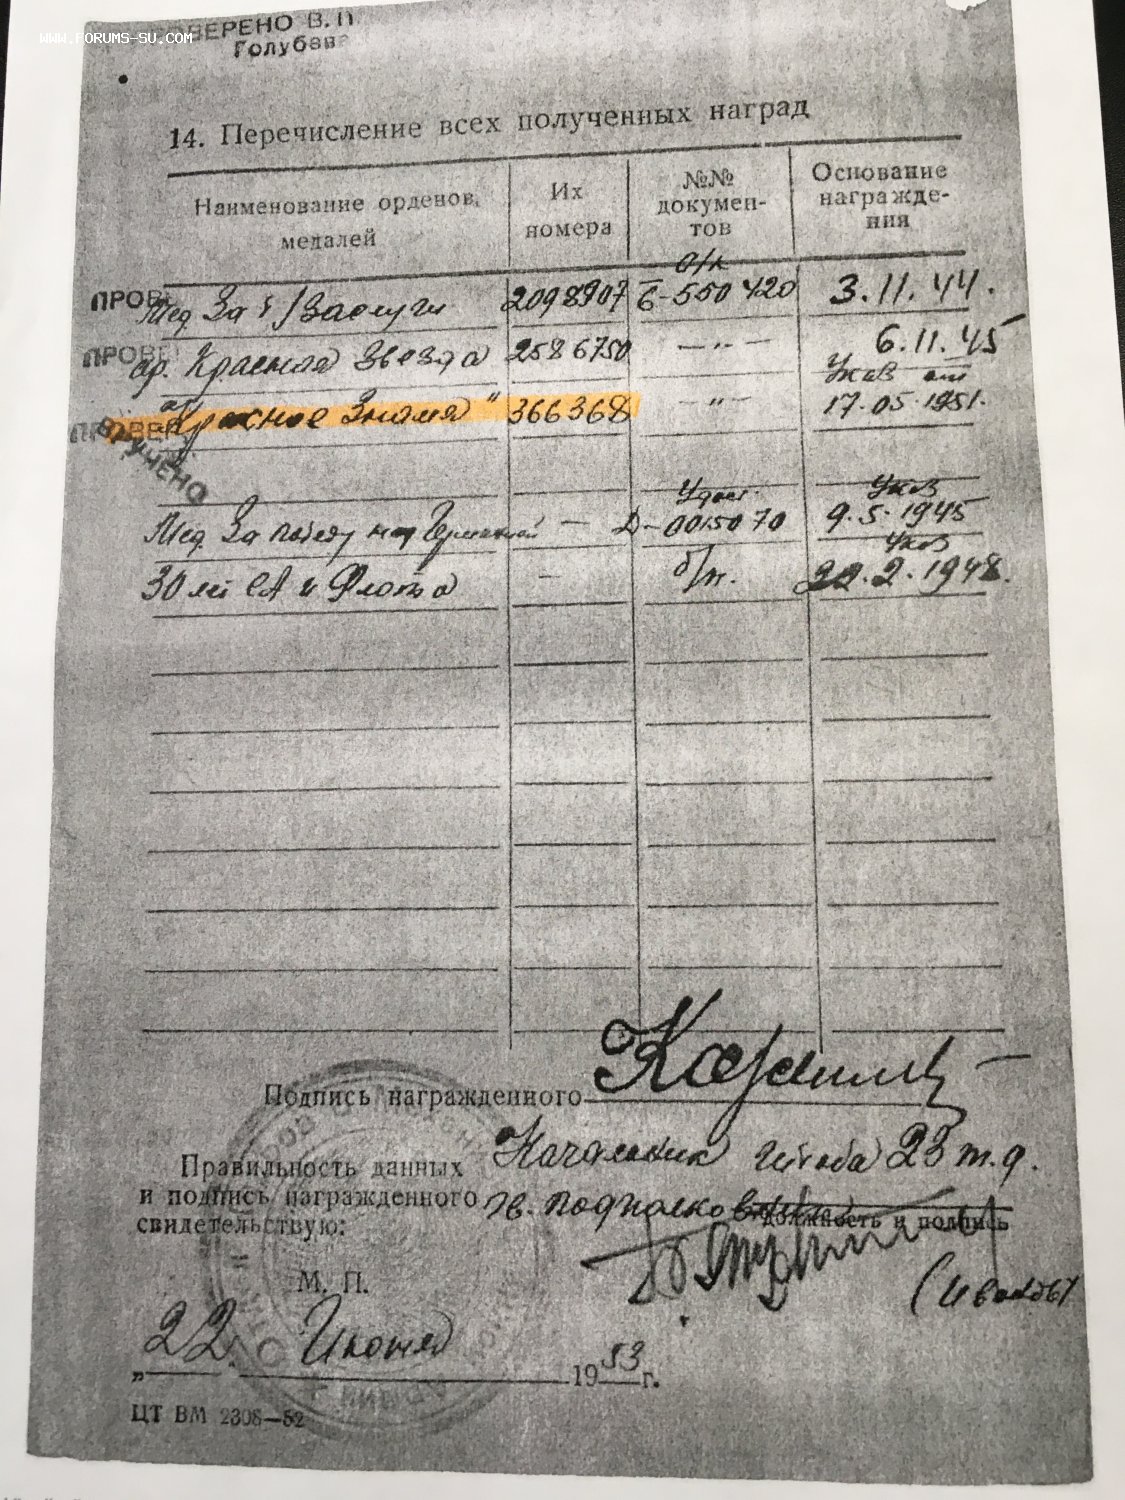 WWW.FORUMS-SU.COM
ОВЕРЕНО В.П
Голубева
14. Перечисление всех полученных наград
Наименование орденов, медалей
Их номера
№№ докумен-тов
Основание награжде-ния
ПРОВ Мед. За б/Заслуги 2098907 о/к Б-550420 3.11.44.
ПРОВЕ ор. Красная Звезда 2586750 —"— 6.11.45
ПРОВЕР "Красное Знамя" 366368 —"— Указ от 17.05.1951.
ВРУЧЕНО
Мед. За победу над Германией — Удост. Д-0015070 Указ 9.5.1945
30 лет СА и Флота — б/н. Указ 22.2.1948.
Подпись награжденного
Правильность данных
и подпись награжденного
свидетельствую:
Начальник штаба 23 т.д.
гв. подполковник
должность и подпись
М. П.
(Иванов)
„22. Июня 1953 г.
ЦТ ВМ 2308—52